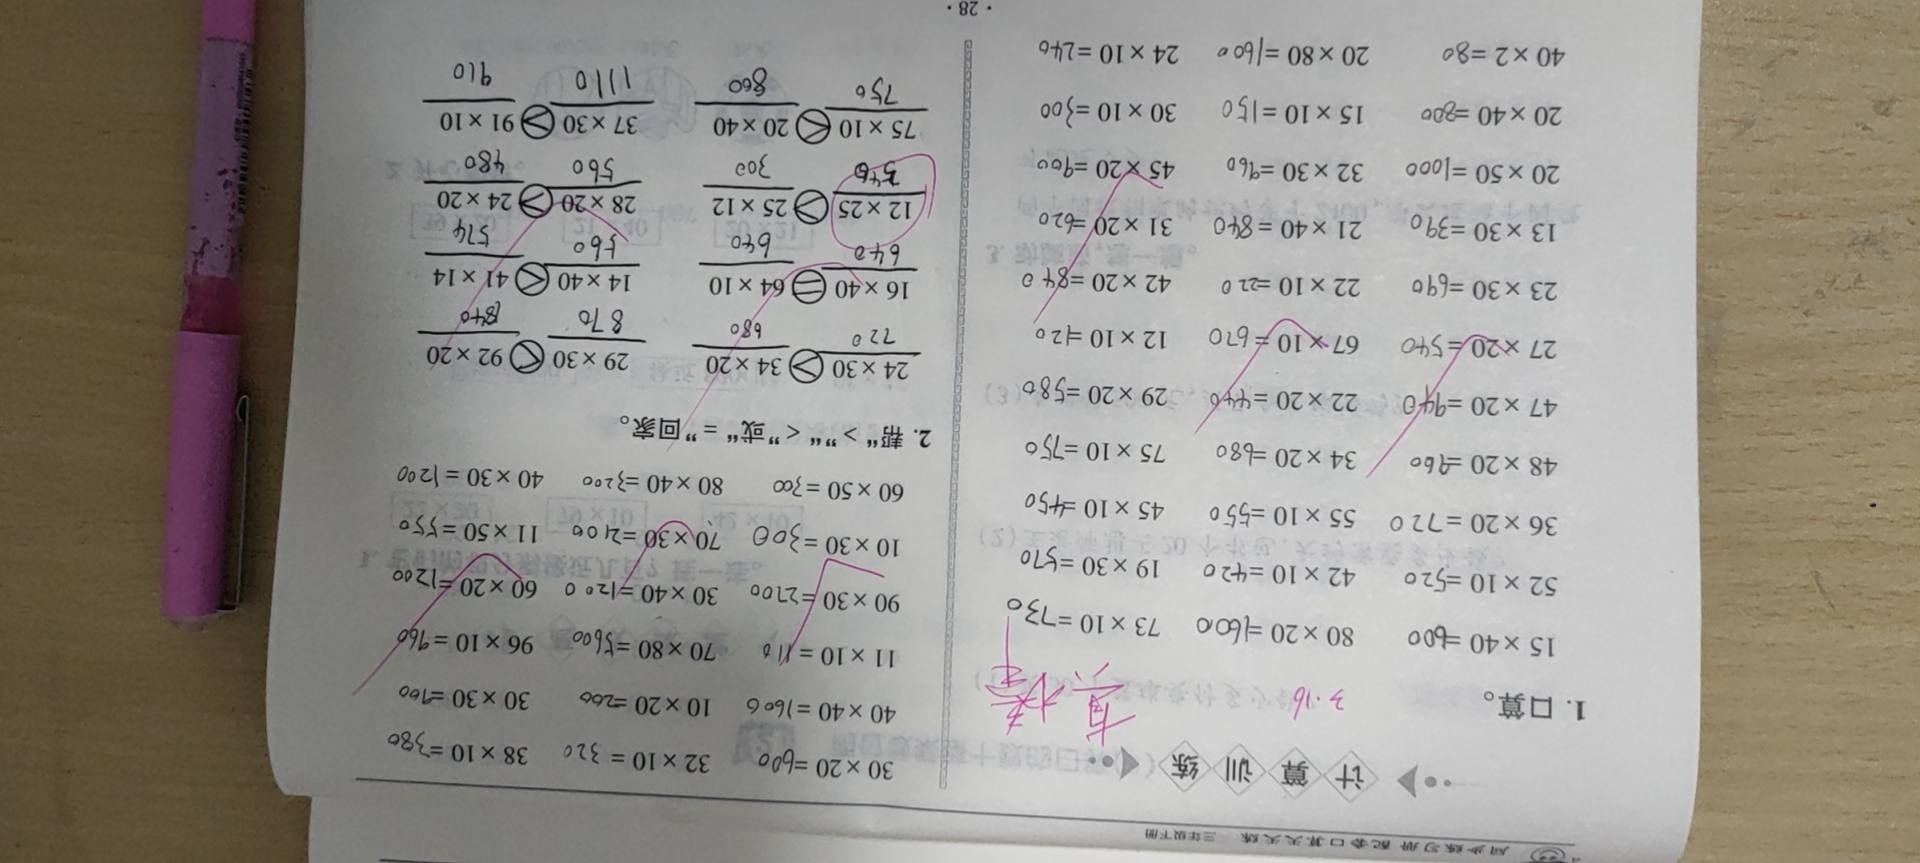 同步练习册 配套口算天天练 三年级下册
计算训练
1. 口算。 3.16
15×40=600 80×20=1600 73×10=730
52×10=520 42×10=420 19×30=570
36×20=720 55×10=550 45×10=450
48×20=960 34×20=680 75×10=750
47×20=940 22×20=440 29×20=580
27×20=540 67×10=670 12×10=120
23×30=690 22×10=220 42×20=840
13×30=390 21×40=840 31×20=620
20×50=1000 32×30=960 45×20=900
20×40=800 15×10=150 30×10=300
40×2=80 20×80=1600 24×10=240
30×20=600 32×10=320 38×10=380
40×40=1600 10×20=200 30×30=900
11×10=110 70×80=5600 96×10=960
90×30=2700 30×40=1200 60×20=1200
10×30=300 70×30=2100 11×50=550
60×50=300 80×40=3200 40×30=1200
2. 帮“>”“<”或“=”回家。
24×30>34×20 29×30<92×20
720 680 870 1840
16×40=64×10 14×40<41×14
640 640 560 574
12×25>25×12 28×20>24×20
340 300 560 480
75×10<20×40 37×30>91×10
750 800 1110 910
· 28 ·